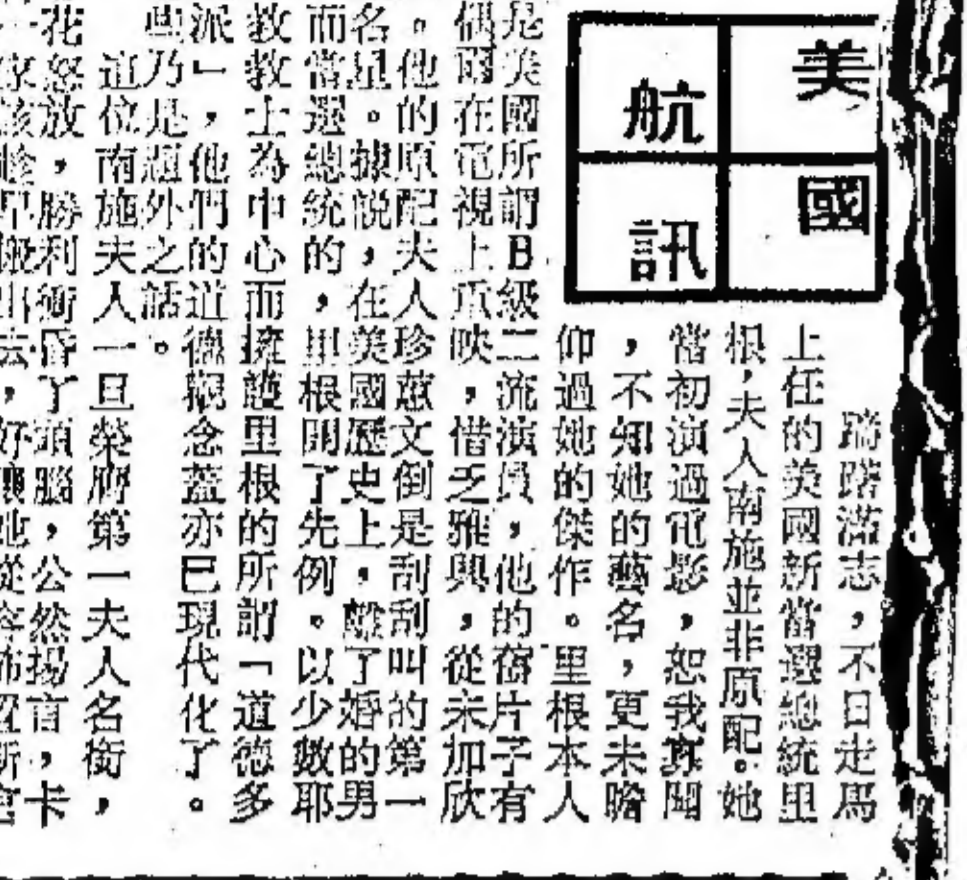 美國
航訊
躊躇滿志,不日走馬
上任的美國新當選總統里
根,夫人南施並非原配。她
當初演過電影,恕我寡聞
,不知她的藝名,更未瞻
仰過她的傑作。里根本人
是美國所謂B級二流演員,他的舊片子有
偶爾在電視上重映,惜乏雅興,從未加欣
。他的原配夫人珍蕙文倒是刮刮叫的第一
名星。據說,在美國歷史上,離了婚的男
而當選總統的,里根開了先例。以少數耶
教教士為中心而擁護里根的所謂「道德多
派」,他們的道德觀念蓋亦已現代化了。
些乃是題外之話。
這位南施夫人一旦榮膺第一夫人名銜,
花怒放,勝利衝昏了頭腦,公然揚言,卡
家該趁早搬出去,好讓她從容佈置新宮